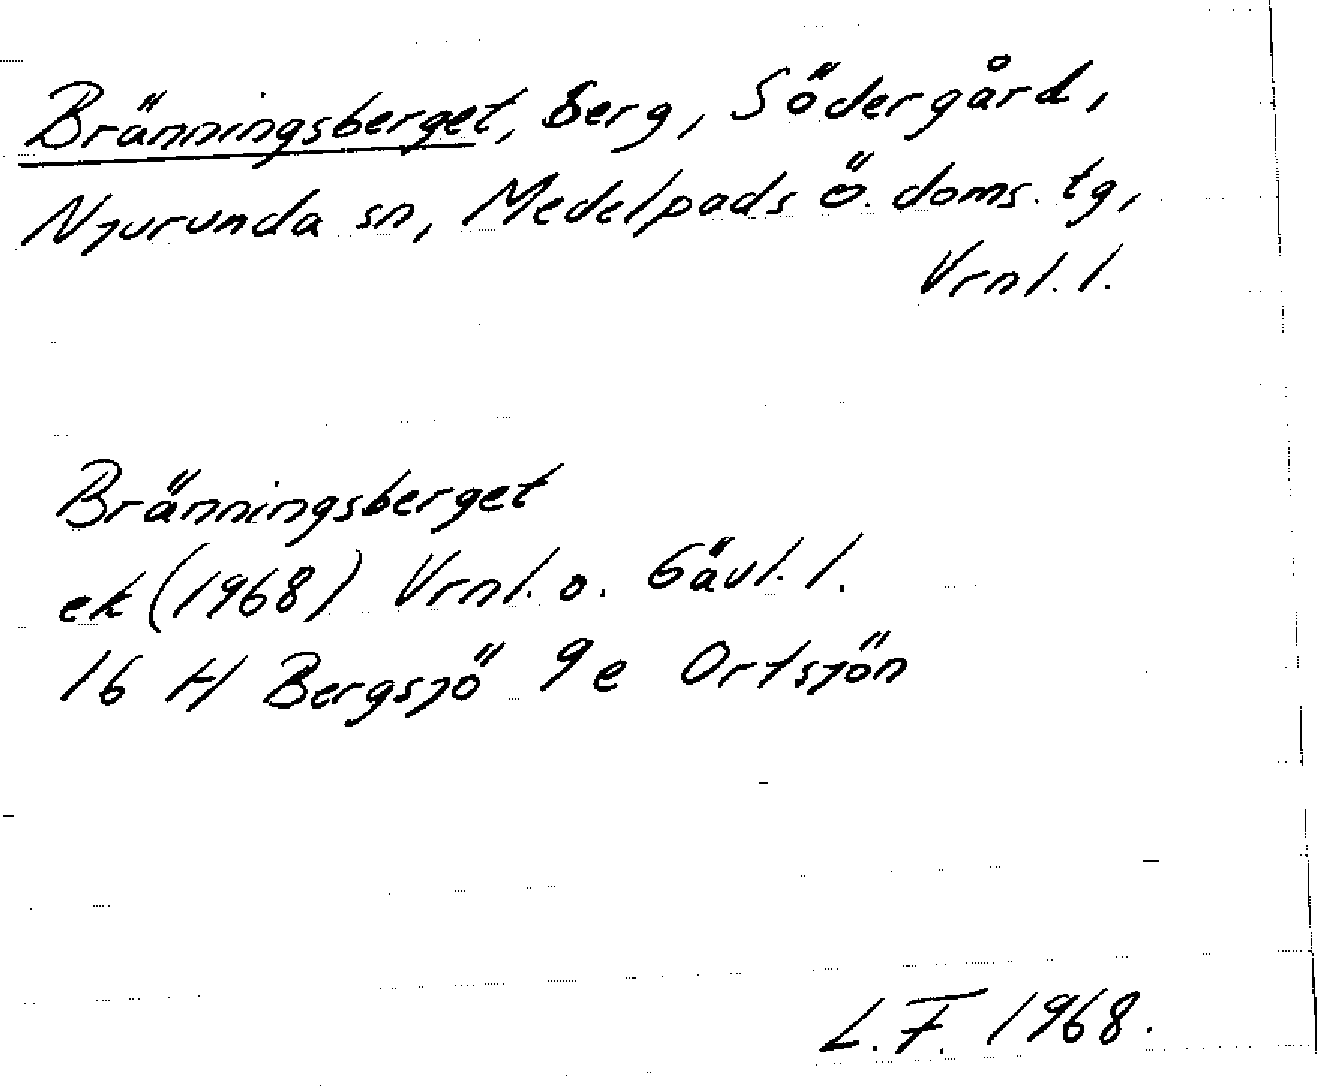 Bränningsberget, berg, Södergård,
Njurunda sn, Medelpads ö. doms. tg,
Vrnl. l.
Bränningsberget
ek (1968) Vrnl. o. Gävl. l.
16 H Bergsjö 9e Ortsjön
L.F. 1968.